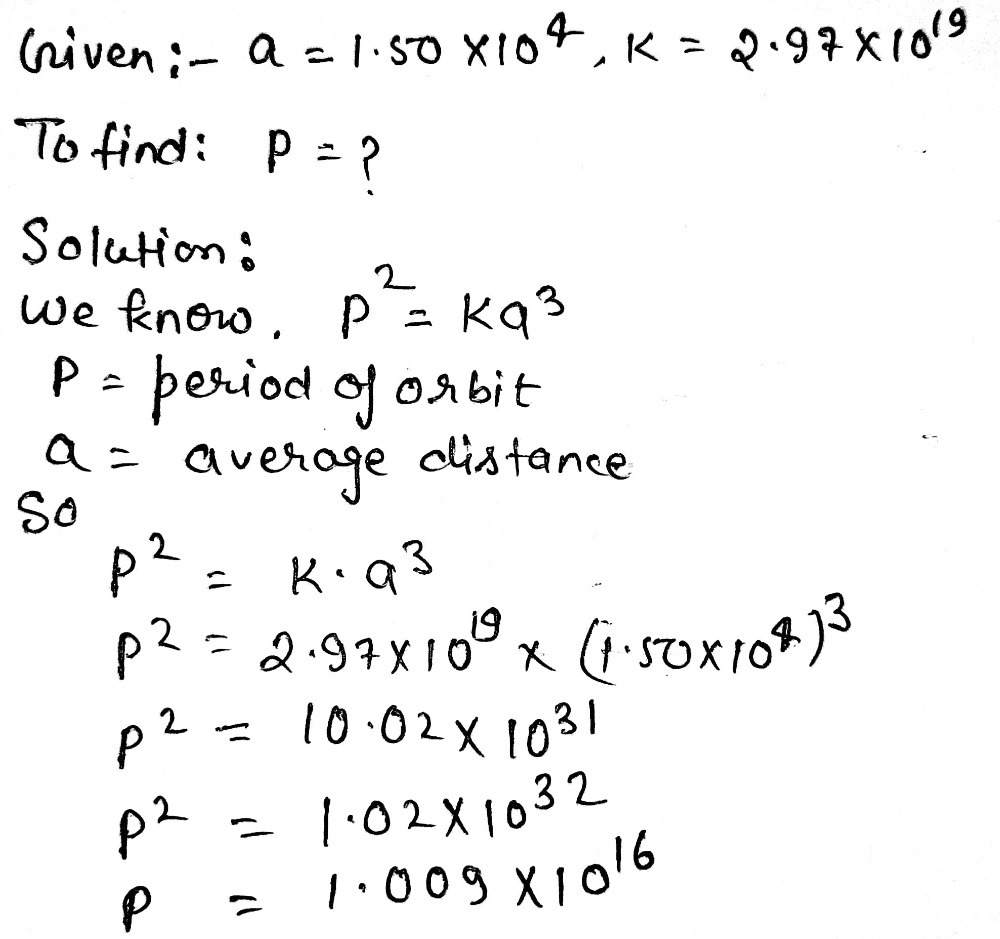 Given :- a = 1.50 × 10⁴, K = 2.97 × 10¹⁹
To find: P = ?
Solution:
We know. P² = Ka³
P = period of orbit
a = average distance
So
P² = K · a³
P² = 2.97 × 10¹⁹ × (1.50 × 10⁴)³
P² = 10.02 × 10³¹
P² = 1.02 × 10³²
P = 1.009 × 10¹⁶